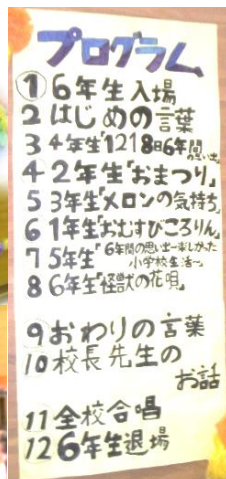 プログラム
1 6年生入場
2 はじめの言葉
3 4年生「1218日6年間
の思い出」
4 2年生「おまつり」
5 3年生「メロンの気持ち」
6 1年生「おむすびころりん」
7 5年生「6年間の思い出〜楽しかった
小学校生活〜」
8 6年生「怪獣の花唄」
9 おわりの言葉
10 校長先生の
お話
11 全校合唱
12 6年生退場